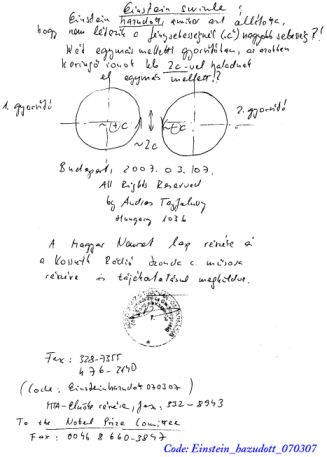 Einstein swinle !
Einstein hazudott, amikor azt állította,
hogy nem létezik a fénysebességnél (c) nagyobb sebesség?!
Két egymás melletti gyorsítóban, az azokban
keringő ionok kb 2c-vel haladnak
el egymás mellett!?
1. gyorsító
2. gyorsító
~(+)c
~(-)c
~2c
Budapest, 2007. 03. 07.
All Rights Reserved
by Andras
Hungary 1036
A Magyar Nemzet lap részére és
a Kossuth Rádió c. műsora
részére is tájékoztatásul megküldve.
Fax: 328-7355
476-2140
(Code: Einsteinhazudott 070307)
MTA-Elnöke részére, fax: 332-8943
To the Nobel Prize Comittee
Fax: 0046 8 660-3847
Code: Einstein_hazudott_070307